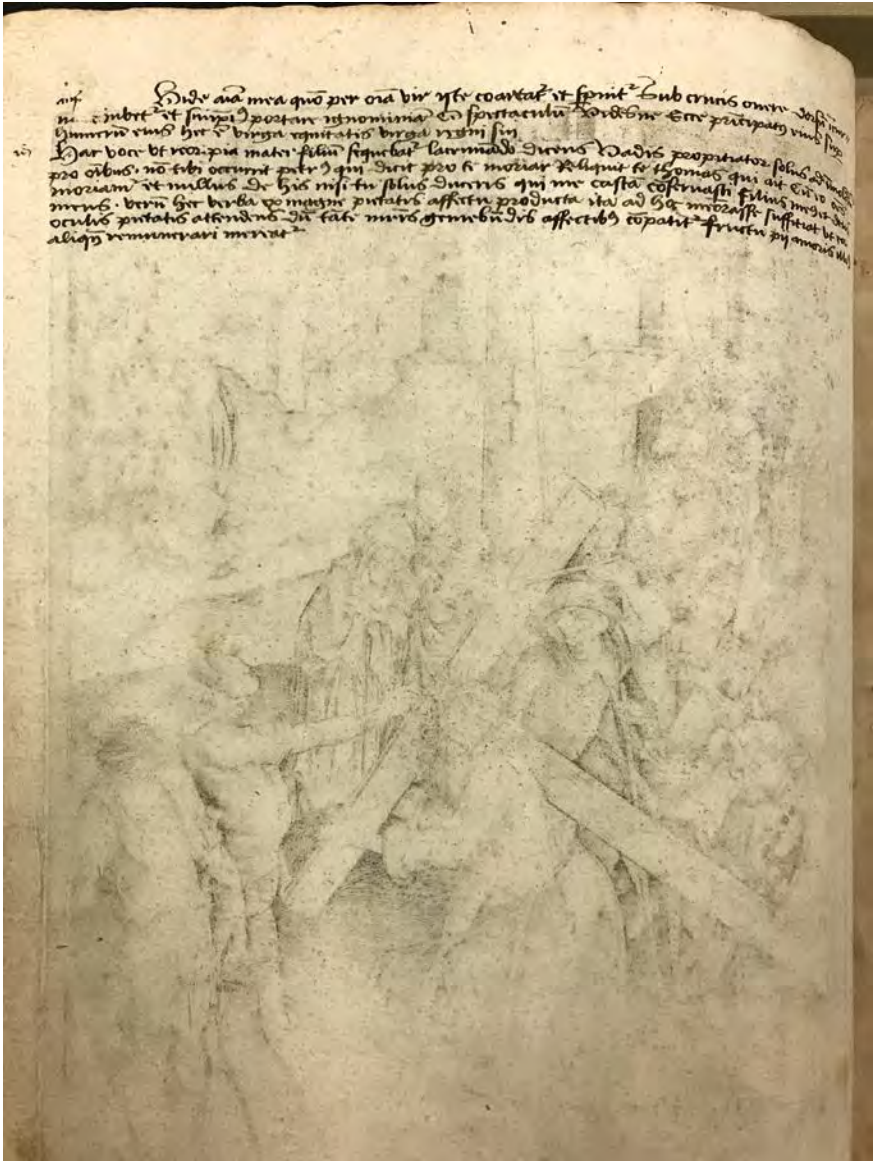 Vide aīa mea quō per oīa vir iste coartat᷑ et spernit᷑ Sub crucis onere
iubet᷑ et portare ignominiā Eñ spectaculū Videsne Ecce pricipatꝯ eius sup
humerū eius hec ē virga equitatis virga regni sui
Hac voce ut reor pia mater filiū sequebat᷑ lacrimādo dicens Vadis propitiator solus ad
pro oībus · nō tibi occurrit petrꝯ qui dicit pro te moriar Reliquit te thomas qui ait Cū
moriam᷑ et nullus de his nisi tu solus duceris qui me castā cōservasti filius meus et deus
meus · verū hec verba ex magne pietatis affectu producta ita ad hoc meōrasse sufficiat ut
oculis pietatis attendens dū tāte mr̄is gemebūdis affectibꝯ cōpatit᷑ fructu pii amoris
aliqn̄ remunerari mereat᷑